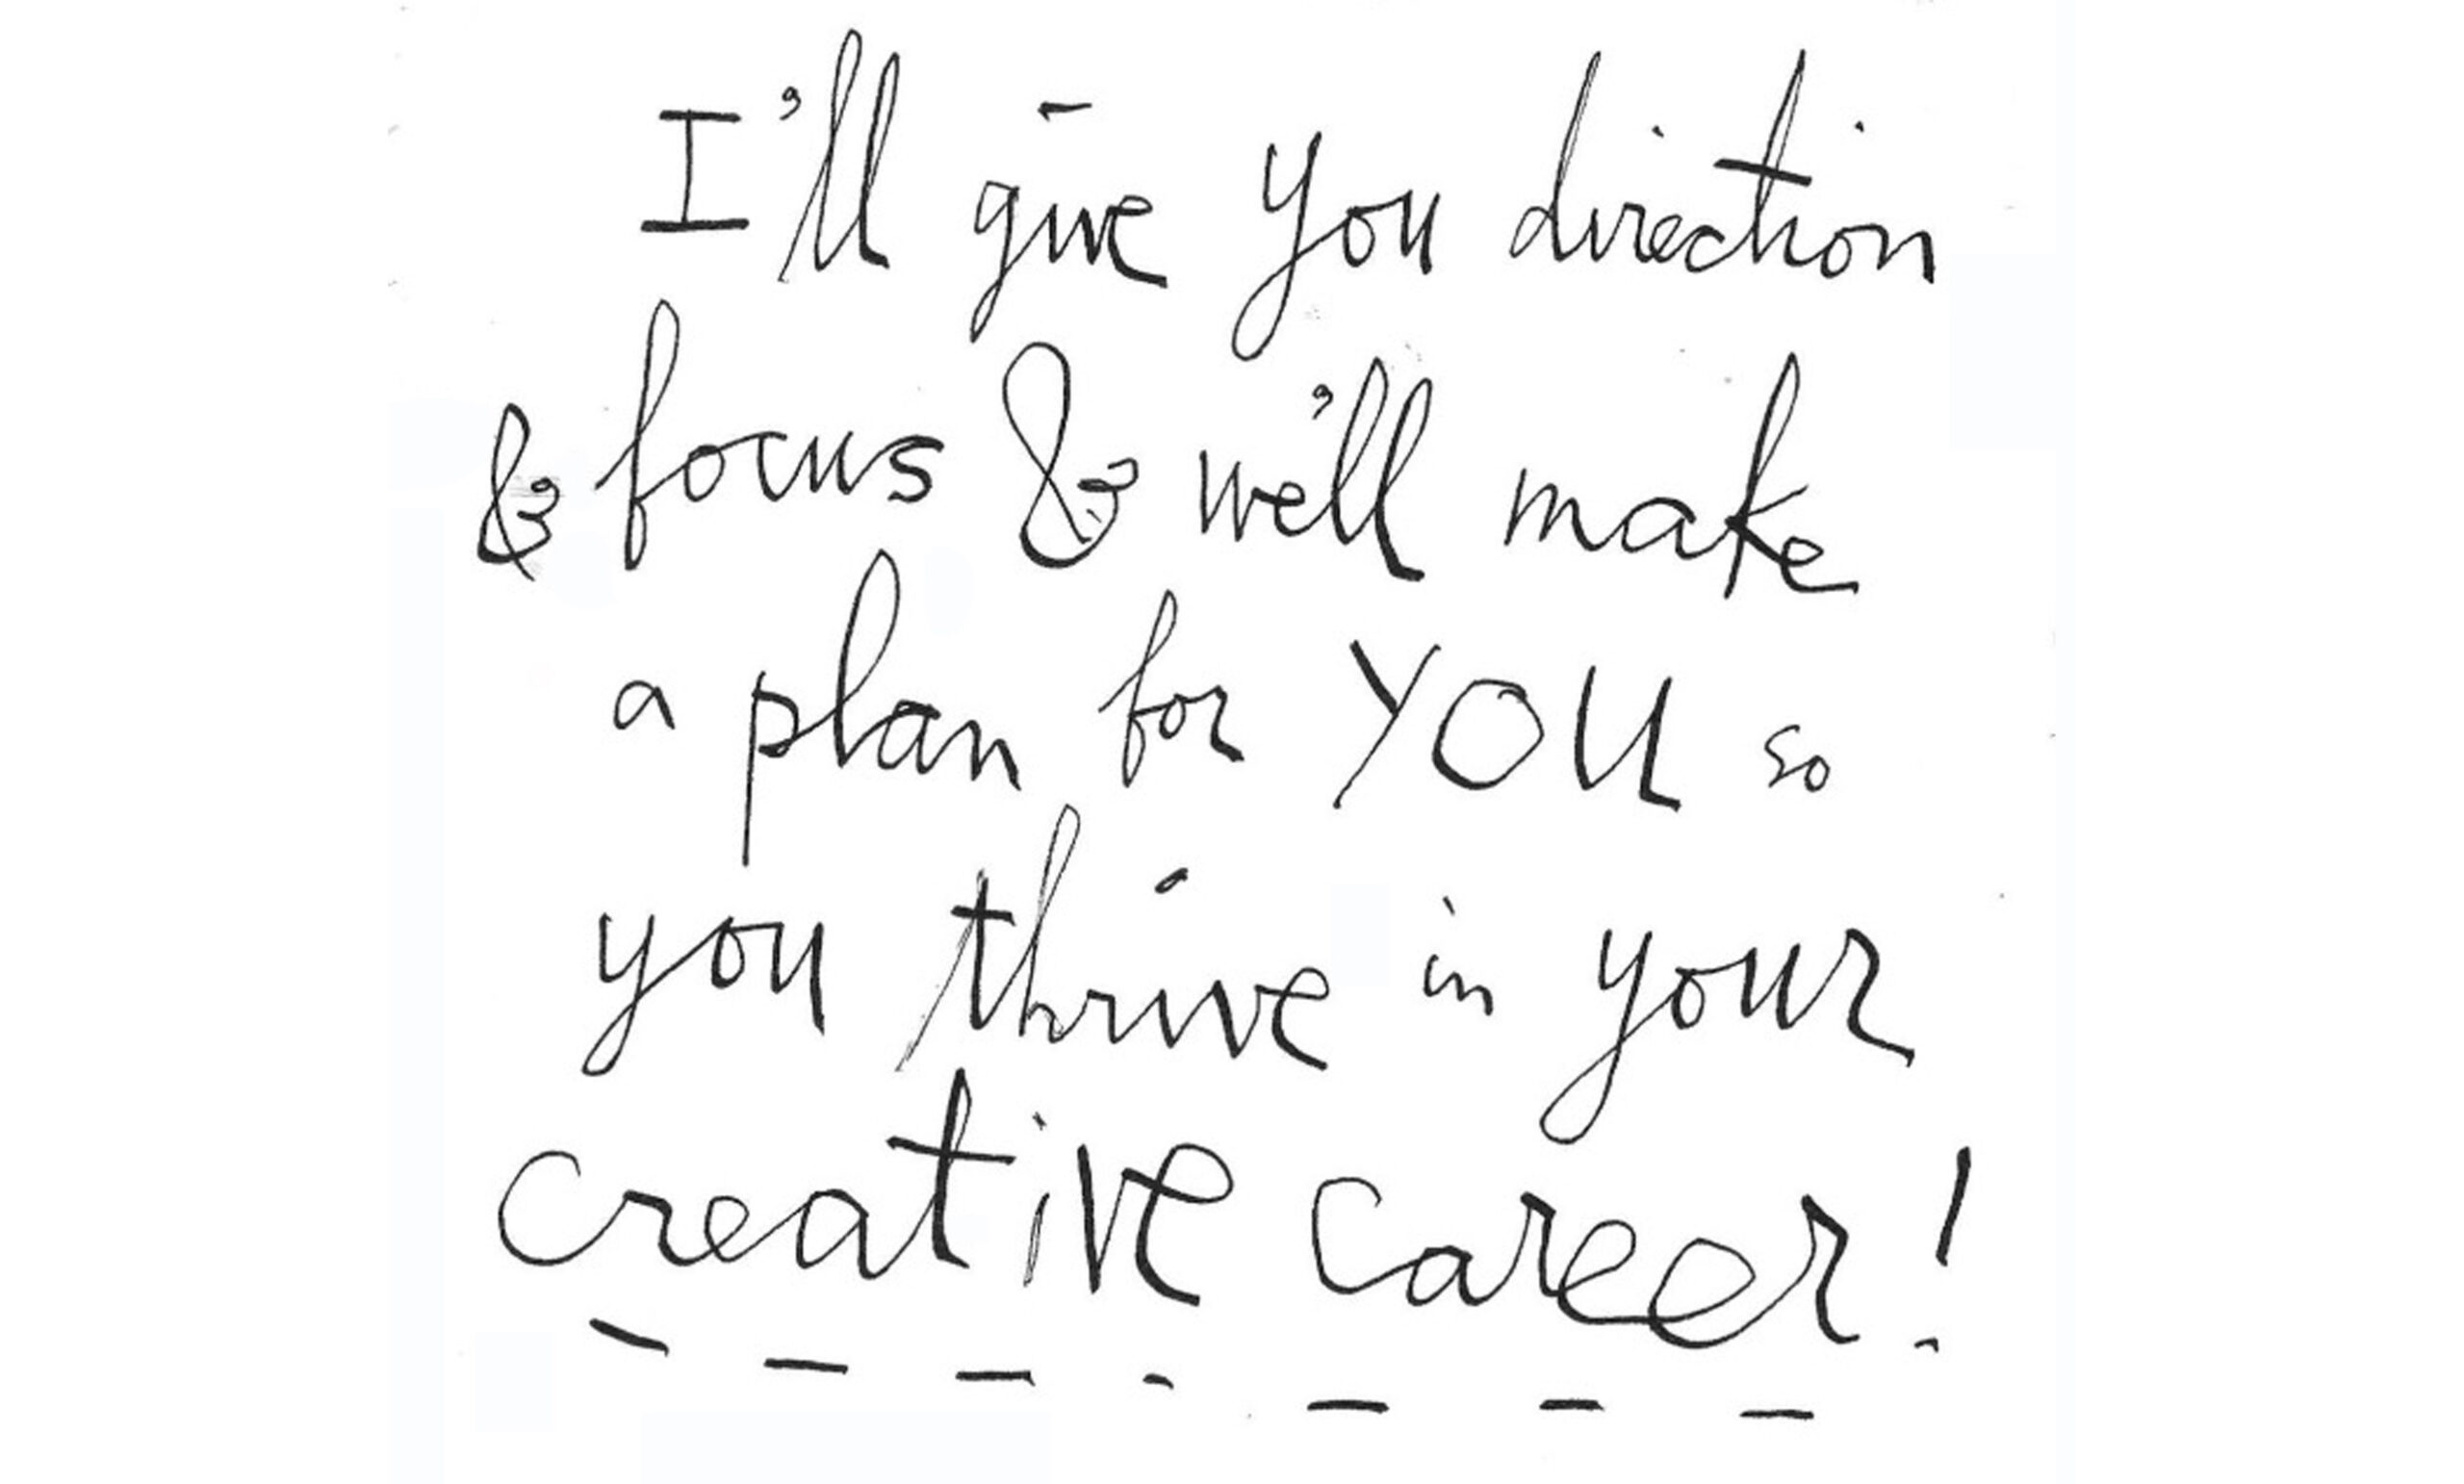 I'll give you direction
& focus & we'll make
a plan for YOU so
you thrive in your
creative career!